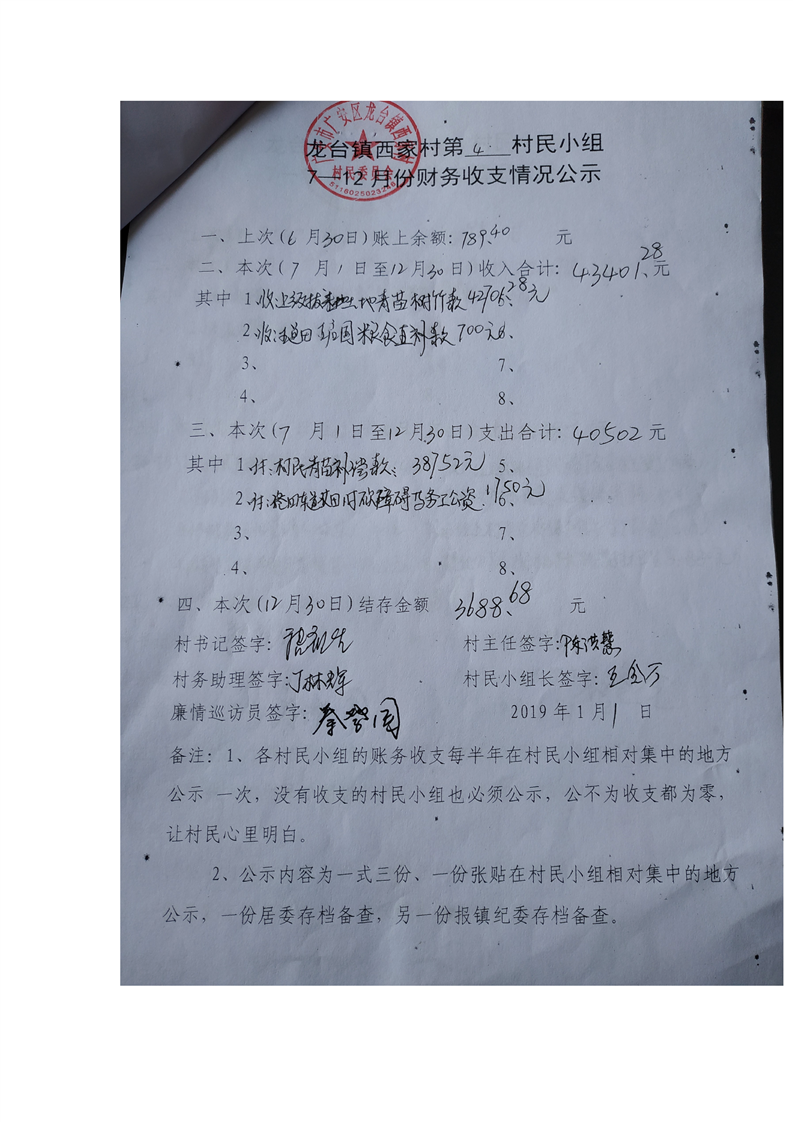 龙台镇西家村第 4 村民小组
7—12月份财务收支情况公示
村民委员会
一、上次(6月30日)账上余额: 789.40 元
二、本次(7月1日至12月30日)收入合计: 43401.28元
其中 1、收: 土地青苗树竹款42701.28元
2、收: 粮食直补款700元 6、
3、 7、
4、 8、
三、本次(7月1日至12月30日)支出合计: 40502元
其中 1、付:村民青苗补偿款: 38752元 5、
2、付: 砍障碍 务工工资: 1750元 6、
3、 7、
4、 8、
四、本次(12月30日)结存金额 3688.68 元
村书记签字: 村主任签字:陈洪慧
村务助理签字:丁林辉 村民小组长签字:
廉情巡访员签字: 2019年1月1日
备注: 1、各村民小组的账务收支每半年在村民小组相对集中的地方
公示 一次，没有收支的村民小组也必须公示，公不为收支都为零，
让村民心里明白。
2、公示内容为一式三份、一份张贴在村民小组相对集中的地方
公示，一份居委存档备查，另一份报镇纪委存档备查。